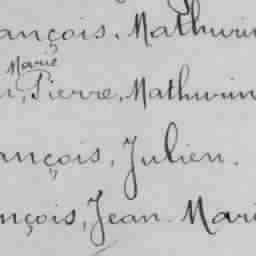 ançois, Mathurin
Marie
n, Pierre, Mathurin
ançois, Julien.
nçois, Jean Mari